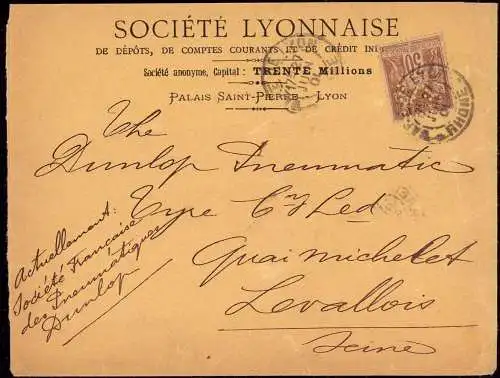 SOCIÉTÉ LYONNAISE
DE DÉPÔTS, DE COMPTES COURANTS ET DE CRÉDIT
Société anonyme, Capital: TRENTE Millions
PALAIS SAINT-PIERRE - LYON
LYON
JUIN
30
RHONE
The
Dunlop Pneumatic
Tyre Cy Led
Quai Michelet
Levallois
Seine
Actuellement:
Société Française
des Pneumatiques
Dunlop